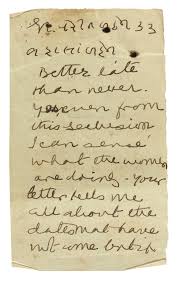 Better late
than never.
Yes even from
this seclusion
I can sense
what the women
are doing. Your
letter tells me
all about the
dates that have
not come but